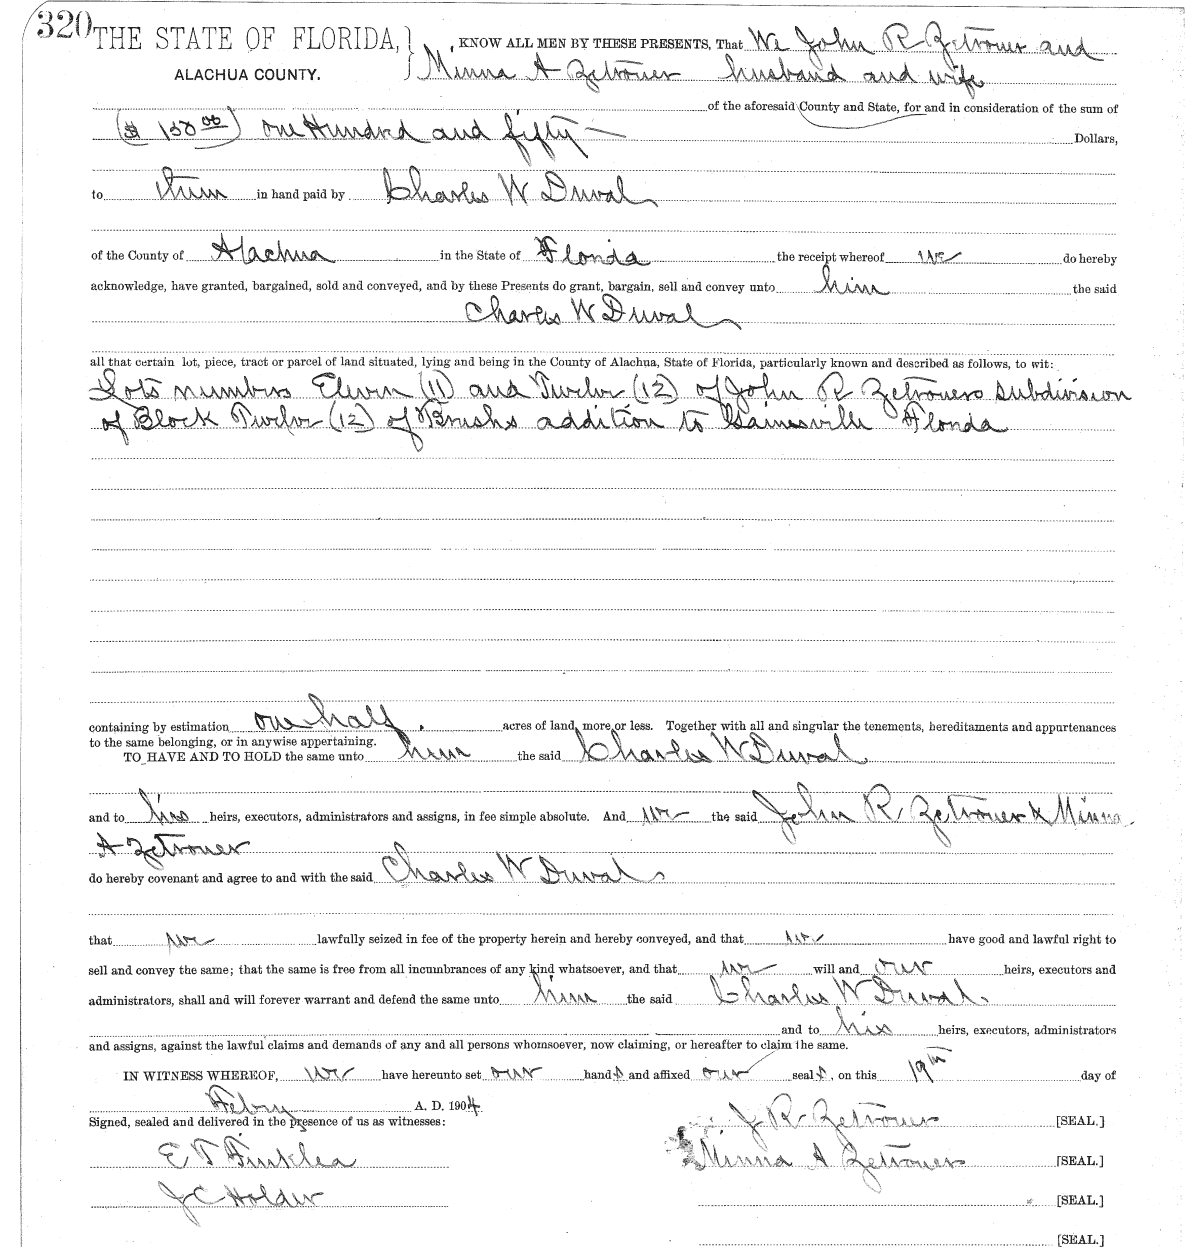 320 THE STATE OF FLORIDA, KNOW ALL MEN BY THESE PRESENTS, That We John R Zetrouer and
ALACHUA COUNTY. Minna A Zetrouer husband and wife
of the aforesaid County and State, for and in consideration of the sum of
($ 150 00) one Hundred and fifty — Dollars,
to them in hand paid by Charles W Duval
of the County of Alachua in the State of Florida the receipt whereof we do hereby
acknowledge, have granted, bargained, sold and conveyed, and by these Presents do grant, bargain, sell and convey unto him the said
Charles W Duval
all that certain lot, piece, tract or parcel of land situated, lying and being in the County of Alachua, State of Florida, particularly known and described as follows, to wit:
Lots numbers Eleven (11) and Twelve (12) of John R Zetrouers subdivision
of Block Twelve (12) of Brushs addition to Gainesville Florida
containing by estimation one half. acres of land, more or less. Together with all and singular the tenements, hereditaments and appurtenances
to the same belonging, or in anywise appertaining.
TO HAVE AND TO HOLD the same unto him the said Charles W Duval
and to his heirs, executors, administrators and assigns, in fee simple absolute. And we the said John R. Zetrouer & Minna
A Zetrouer
do hereby covenant and agree to and with the said Charles W Duval
that we lawfully seized in fee of the property herein and hereby conveyed, and that we have good and lawful right to
sell and convey the same; that the same is free from all incumbrances of any kind whatsoever, and that we will and our heirs, executors and
administrators, shall and will forever warrant and defend the same unto him the said Charles W Duval.
and to his heirs, executors, administrators
and assigns, against the lawful claims and demands of any and all persons whomsoever, now claiming, or hereafter to claim the same.
IN WITNESS WHEREOF, we have hereunto set our hands and affixed our seals, on this 19th day of
Febry A. D. 1904.
Signed, sealed and delivered in the presence of us as witnesses: J R Zetrouer [SEAL.]
E T Finklea Minna A Zetrouer [SEAL.]
J C Holder [SEAL.]
[SEAL.]